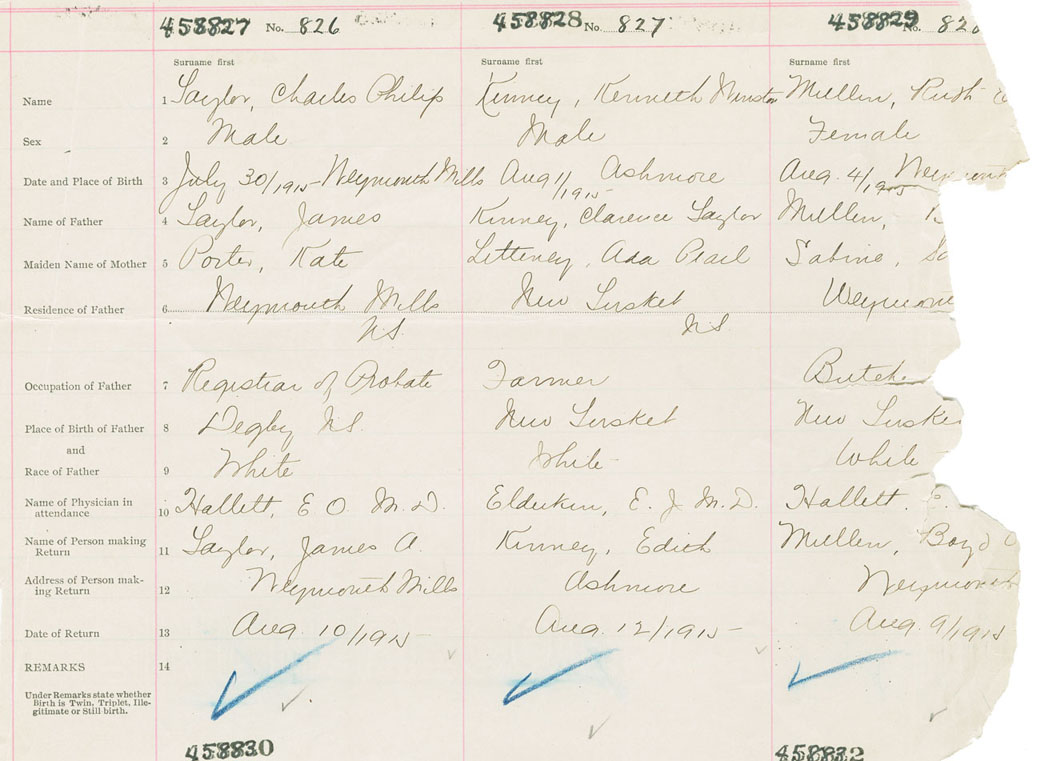 458827 No. 826 458828 No. 827 458829 No. 82
Surname first Surname first Surname first
Name 1 Taylor, Charles Philip Kinney, Kenneth Winston Mullen, Ruth
Sex 2 Male Male Female
Date and Place of Birth 3 July 30/1915 Weymouth Mills Aug 11/1915 Ashmore Aug. 4/1915 Weymouth
Name of Father 4 Taylor, James Kinney, Clarence Taylor Mullen, B
Maiden Name of Mother 5 Porter, Kate Letteney, Ada Pearl Sabine, Sa
Residence of Father 6 Weymouth Mills New Tusket Weymout
N.S. N.S.
Occupation of Father 7 Registrar of Probate Farmer Butche
Place of Birth of Father 8 Digby N.S. New Tusket New Tusket
and
Race of Father 9 White White White
Name of Physician in
attendance 10 Hallett, E O. M.D. Elderkin, E. J. M.D. Hallett, E.
Name of Person making
Return 11 Taylor, James A. Kinney, Edith Mullen, Boyd
Address of Person mak-
ing Return 12 Weymouth Mills Ashmore Weymouth
Date of Return 13 Aug 10/1915 Aug. 12/1915 Aug. 9/1915
REMARKS 14
Under Remarks state whether
Birth is Twin, Triplet, Ille-
gitimate or Still-birth.
458830 458832